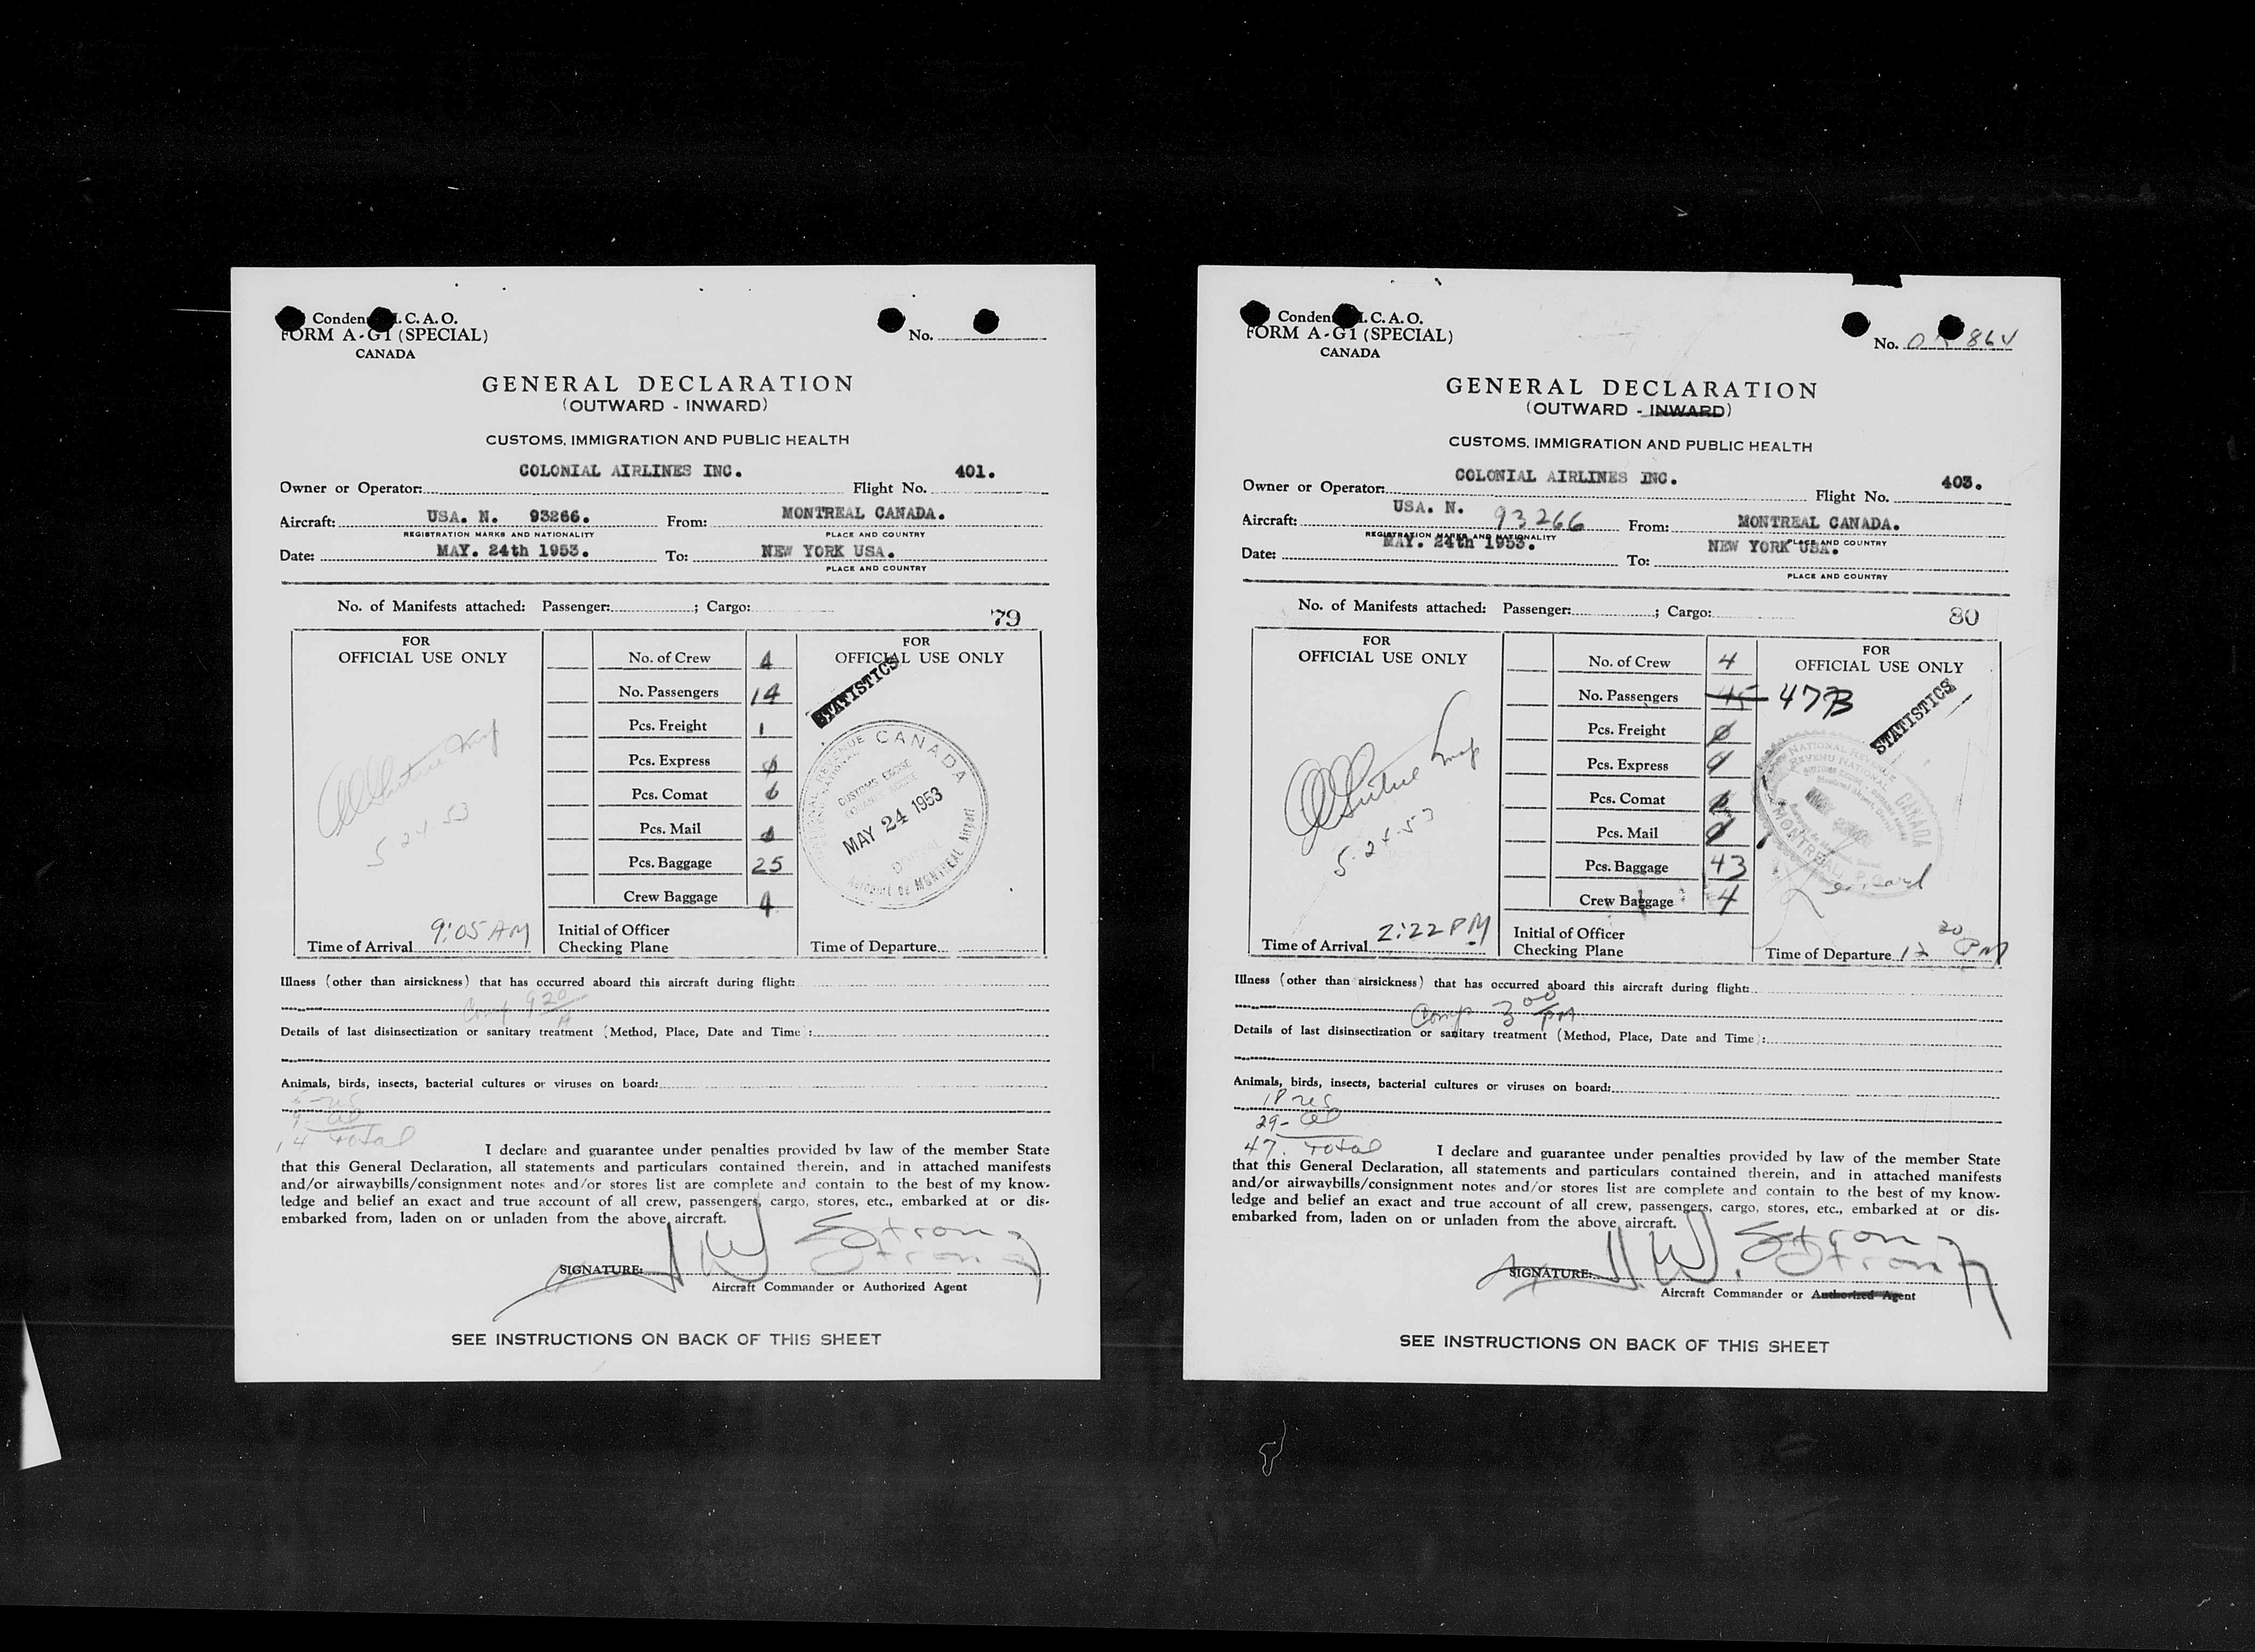 Conden I.C.A.O.
FORM A-G1 (SPECIAL)
CANADA
No.
GENERAL DECLARATION
(OUTWARD - INWARD)
CUSTOMS, IMMIGRATION AND PUBLIC HEALTH
Owner or Operator: COLONIAL AIRLINES INC. Flight No. 401.
Aircraft: USA. N. 93266. From: MONTREAL CANADA.
REGISTRATION MARKS AND NATIONALITY PLACE AND COUNTRY
Date: MAY. 24th 1953. To: NEW YORK USA.
PLACE AND COUNTRY
No. of Manifests attached: Passenger: ; Cargo:
79
FOR OFFICIAL USE ONLY
5-24-53
Time of Arrival 9:05 AM
No. of Crew 4
No. Passengers 14
Pcs. Freight 1
Pcs. Express 0
Pcs. Comat 0
Pcs. Mail 0
Pcs. Baggage 25
Crew Baggage 4
Initial of Officer
Checking Plane
FOR OFFICIAL USE ONLY
STATISTICS
CANADA
CUSTOMS EXCISE
MAY 24 1953
DORVAL
Aéroport de MONTREAL Airport
Time of Departure
Illness (other than airsickness) that has occurred aboard this aircraft during flight:
Comp 9 20 A
Details of last disinsectization or sanitary treatment (Method, Place, Date and Time):
Animals, birds, insects, bacterial cultures or viruses on board:
5 - res
9 - al
14 Total
I declare and guarantee under penalties provided by law of the member State
that this General Declaration, all statements and particulars contained therein, and in attached manifests
and/or airwaybills/consignment notes and/or stores list are complete and contain to the best of my know-
ledge and belief an exact and true account of all crew, passengers, cargo, stores, etc., embarked at or dis-
embarked from, laden on or unladen from the above aircraft.
SIGNATURE: J W Strong
Aircraft Commander or Authorized Agent
SEE INSTRUCTIONS ON BACK OF THIS SHEET
Conden I.C.A.O.
FORM A-G1 (SPECIAL)
CANADA
No. 864
GENERAL DECLARATION
(OUTWARD - INWARD)
CUSTOMS, IMMIGRATION AND PUBLIC HEALTH
Owner or Operator: COLONIAL AIRLINES INC. Flight No. 403.
Aircraft: USA. N. 93266 From: MONTREAL CANADA.
REGISTRATION MARKS AND NATIONALITY PLACE AND COUNTRY
Date: MAY. 24th 1953. To: NEW YORK USA.
PLACE AND COUNTRY
No. of Manifests attached: Passenger: ; Cargo:
80
FOR OFFICIAL USE ONLY
5-24-53
Time of Arrival 2:22 PM
No. of Crew 4
No. Passengers 45 47
Pcs. Freight 0
Pcs. Express 0
Pcs. Comat 0
Pcs. Mail 0
Pcs. Baggage 43
Crew Baggage 4
Initial of Officer
Checking Plane
FOR OFFICIAL USE ONLY
STATISTICS
NATIONAL REVENUE
REVENU NATIONAL
CANADA
MONTREAL
Time of Departure 12 20 PM
Illness (other than airsickness) that has occurred aboard this aircraft during flight:
Comp 3 00 PM
Details of last disinsectization or sanitary treatment (Method, Place, Date and Time):
Animals, birds, insects, bacterial cultures or viruses on board:
18 res
29 - al
47. Total
I declare and guarantee under penalties provided by law of the member State
that this General Declaration, all statements and particulars contained therein, and in attached manifests
and/or airwaybills/consignment notes and/or stores list are complete and contain to the best of my know-
ledge and belief an exact and true account of all crew, passengers, cargo, stores, etc., embarked at or dis-
embarked from, laden on or unladen from the above aircraft.
SIGNATURE: J.W. Strong
Aircraft Commander or Authorized Agent
SEE INSTRUCTIONS ON BACK OF THIS SHEET